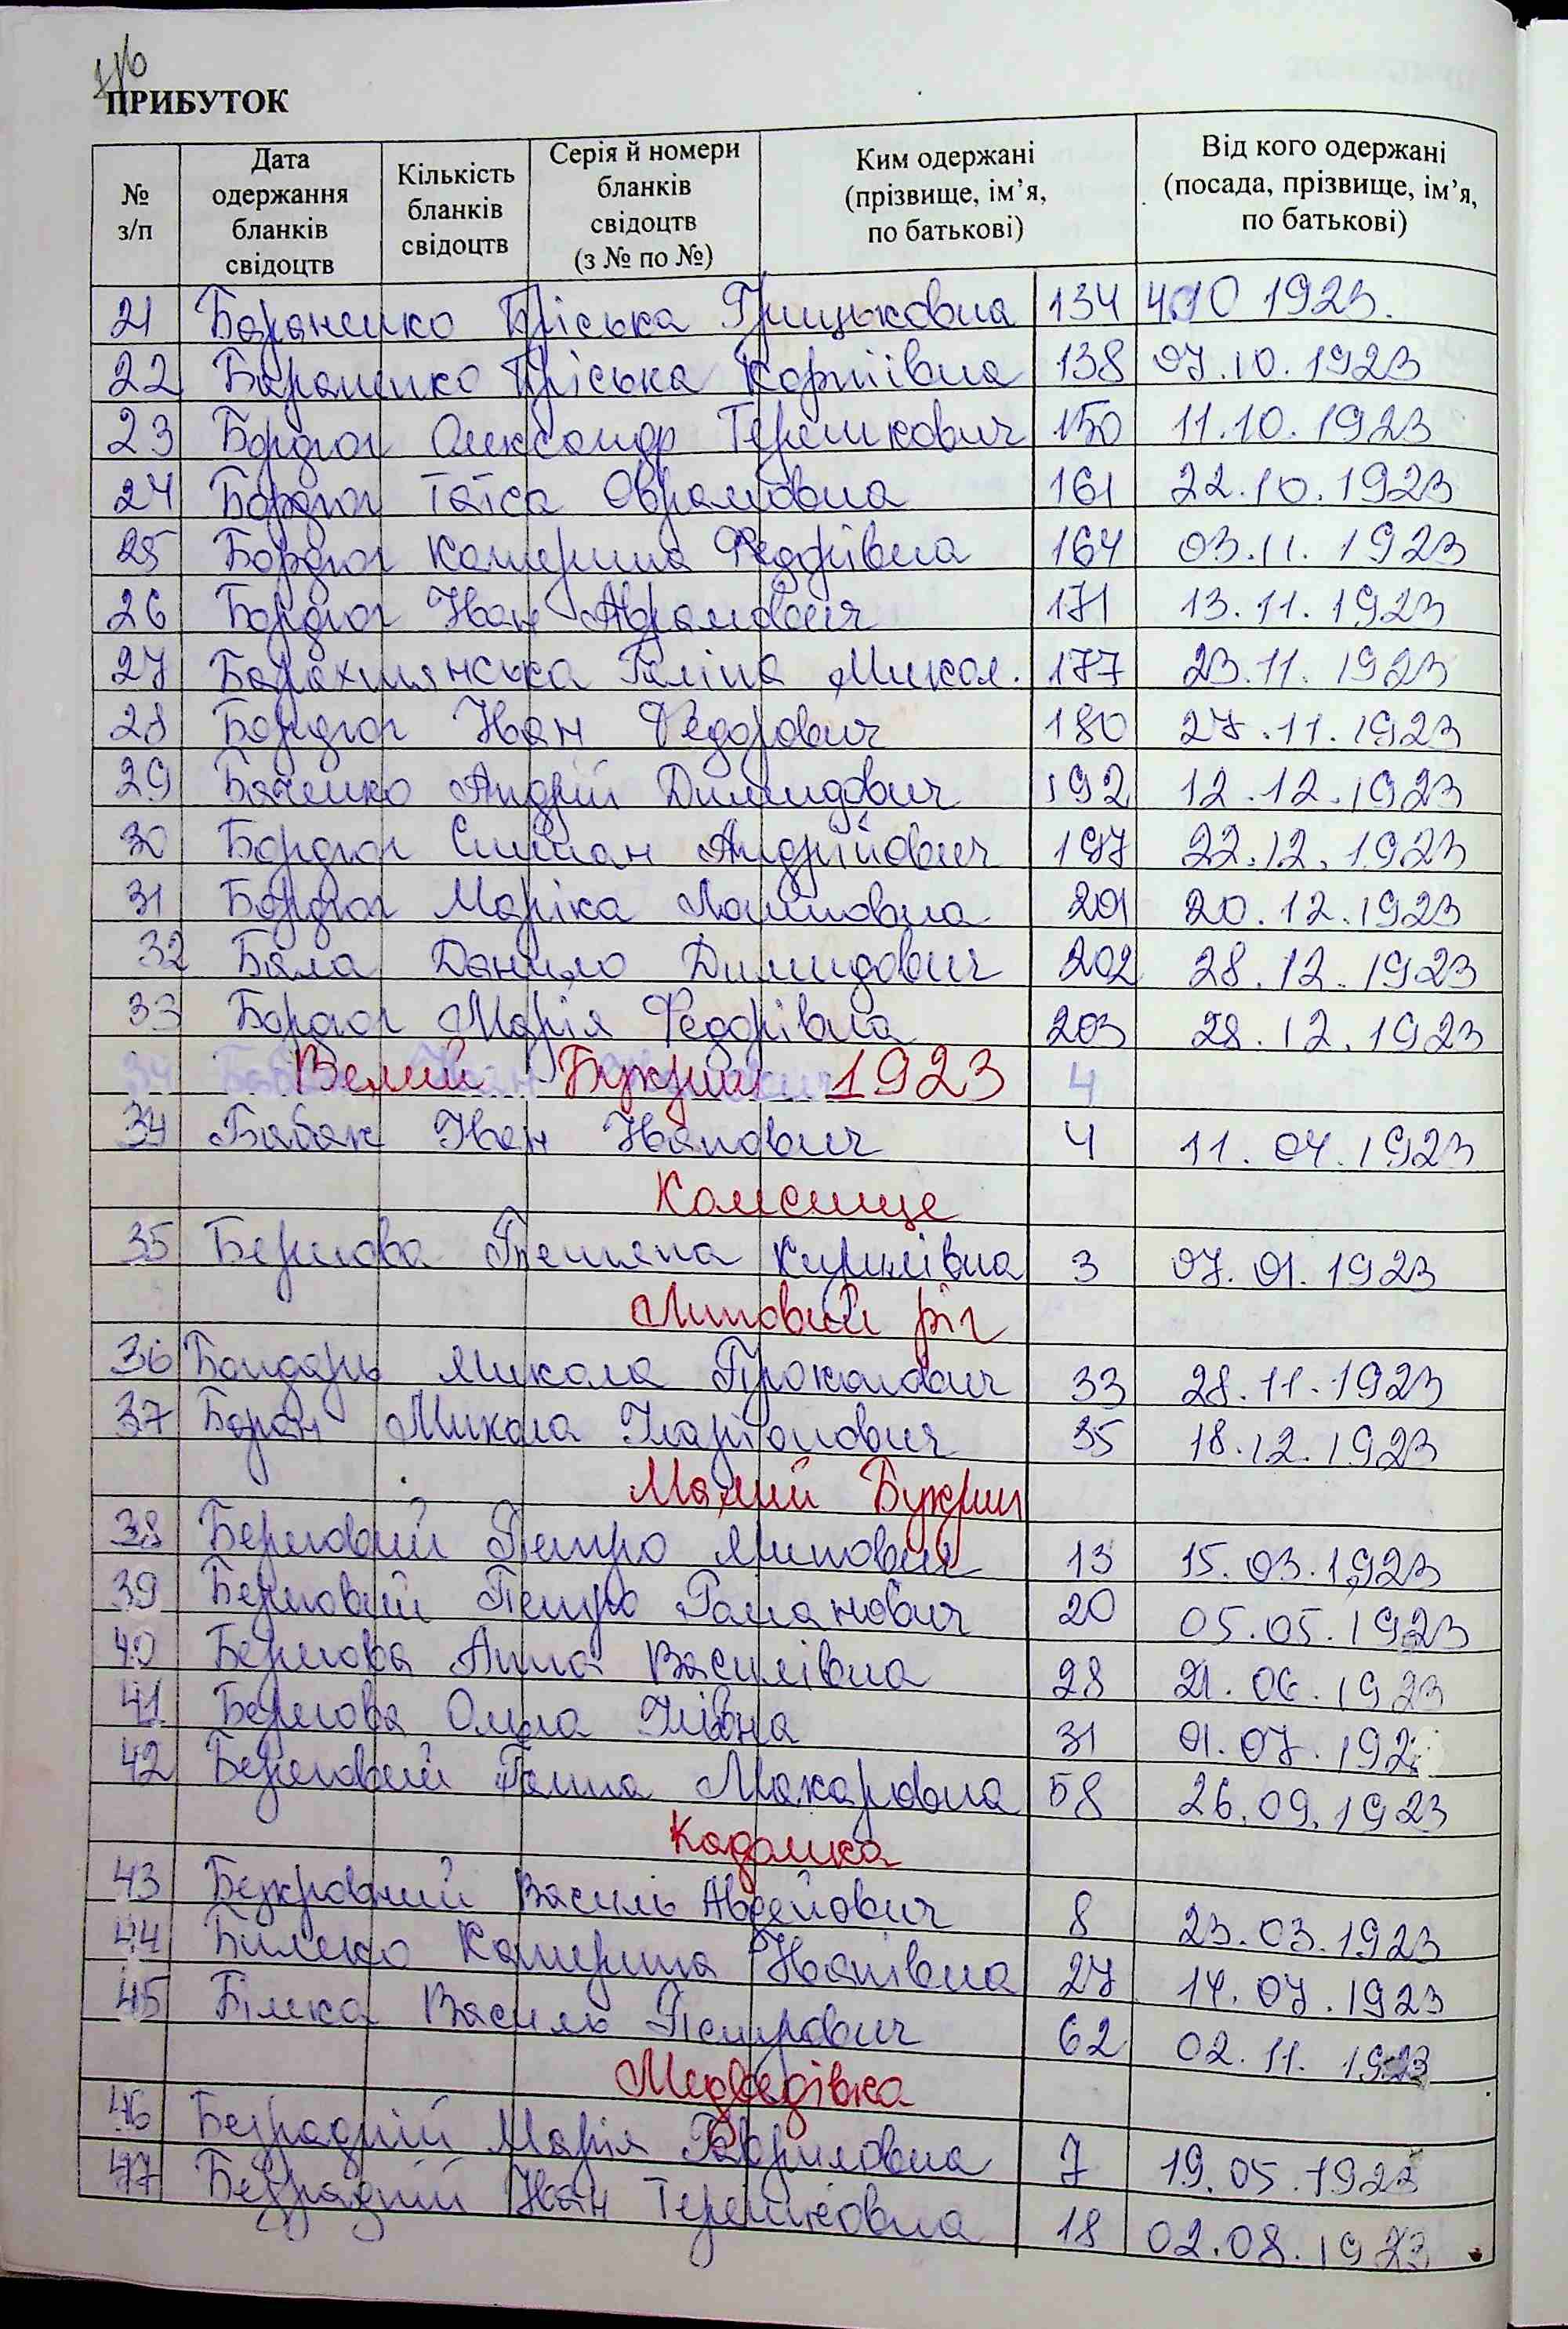 ПРИБУТОК
№ з/п
Дата одержання бланків свідоцтв
Кількість бланків свідоцтв
Серія й номери бланків свідоцтв (з № по №)
Ким одержані (прізвище, ім’я, по батькові)
Від кого одержані (посада, прізвище, ім’я, по батькові)
21 Бараненко Пріська Грицьковна 134 4.10 1923.
22 Бараненко Пріська Корніівна 138 07.10.1923
23 Бордюг Олександр Терешкович 150 11.10.1923
24 Бордюг Таїса Оврамовна 161 22.10.1923
25 Бордюг Катерина Федорівна 164 03.11.1923
26 Бордюг Іван Аврамович 171 13.11.1923
27 Барахтянська Галіна Микол. 177 23.11.1923
28 Бордюг Іван Федорович 180 27.11.1923
29 Баченко Андрій Димидович 192 12.12.1923
30 Бордюг Степан Андрійович 197 22.12.1923
31 Бордюг Маріка 201 20.12.1923
32 Бала Данило Димидович 202 28.12.1923
33 Бордюг Марія Федорівна 203 28.12.1923
Велий Букрин 1923 4
34 Бабак Іван Іванович 4 11.04.1923
Колесище
35 Берегова Тетяна Кирилівна 3 07.01.1923
Липовий ріг
36 Бондарь Микола Прокопович 33 28.11.1923
37 Боран Микола Іларіонович 35 18.12.1923
Малий Букрин
38 Береговий Петро Липович 13 15.03.1923
39 Береговий Петро Романович 20 05.05.1923
40 Берегова Анна Василівна 28 21.06.1923
41 Берегова Олена Ілівна 31 01.07.192
42 Береговий Ганна Макаровна 58 26.09.1923
Кадомка
43 Безкровний Василь Авдейович 8 23.03.1923
44 Билеко Катерина Іванівна 27 14.07.1923
45 Білка Василь Петрович 62 02.11.1923
Медведівка
46 Безрадній Марія Гавриловна 7 19.05.1923
47 Безрадній Іван Терешковна 18 02.08.1923